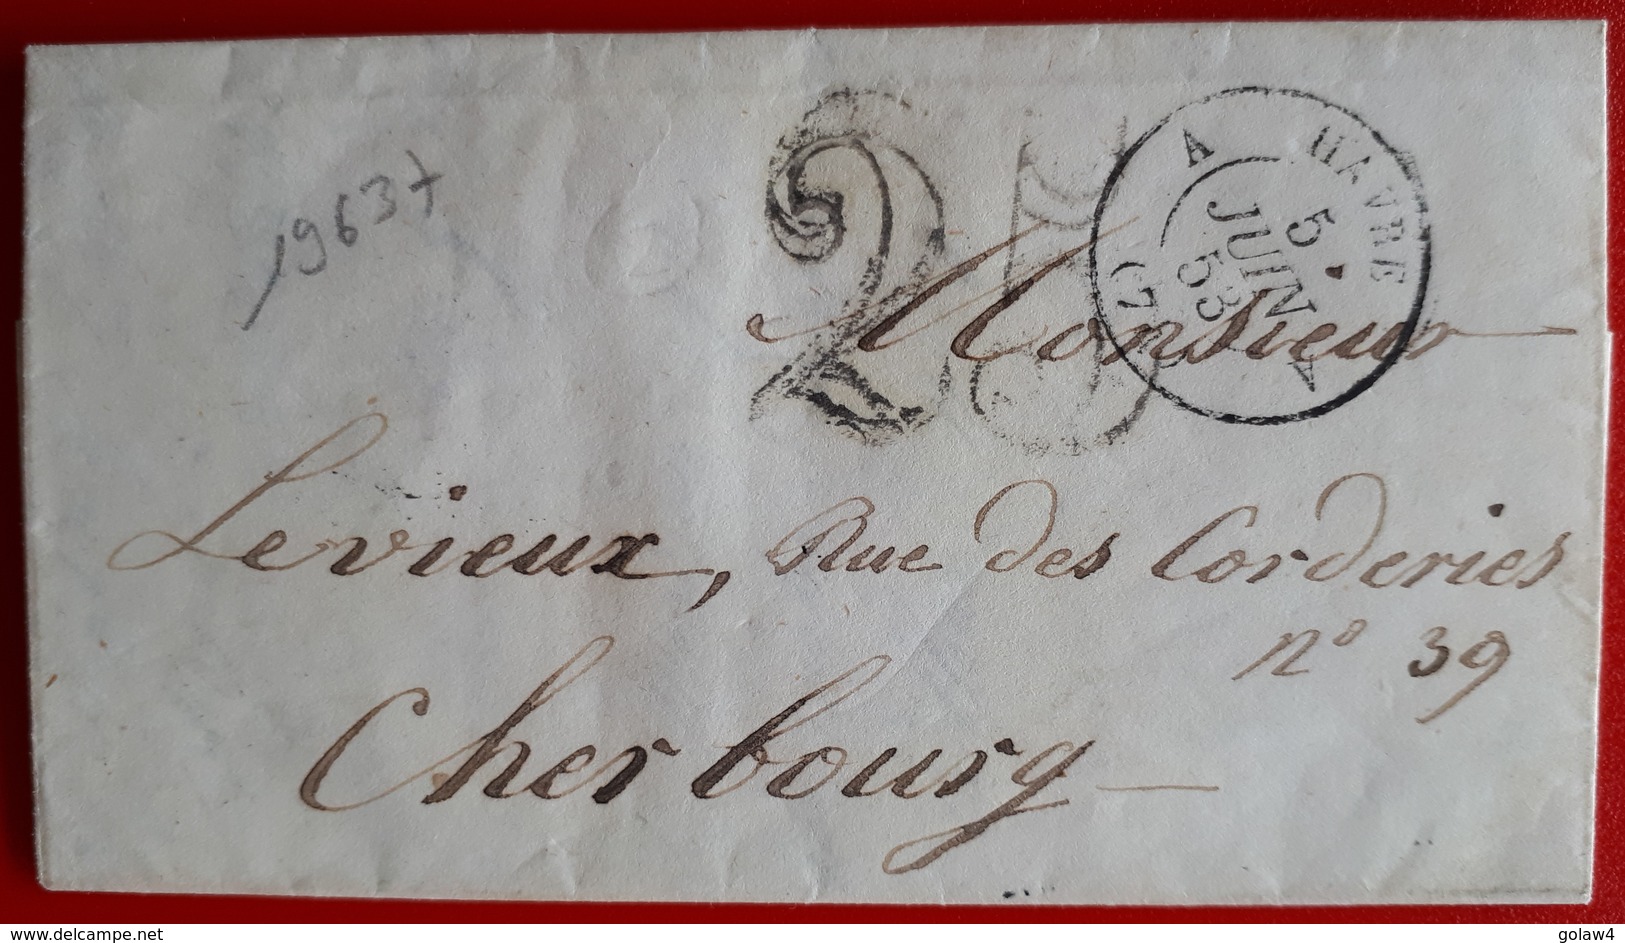 19637
25
A HAVRE
5
JUIN
53
(7
Monsieur
Levieux, Rue des Corderies
n° 39
Cherbourg
www.delcampe.net
golaw4